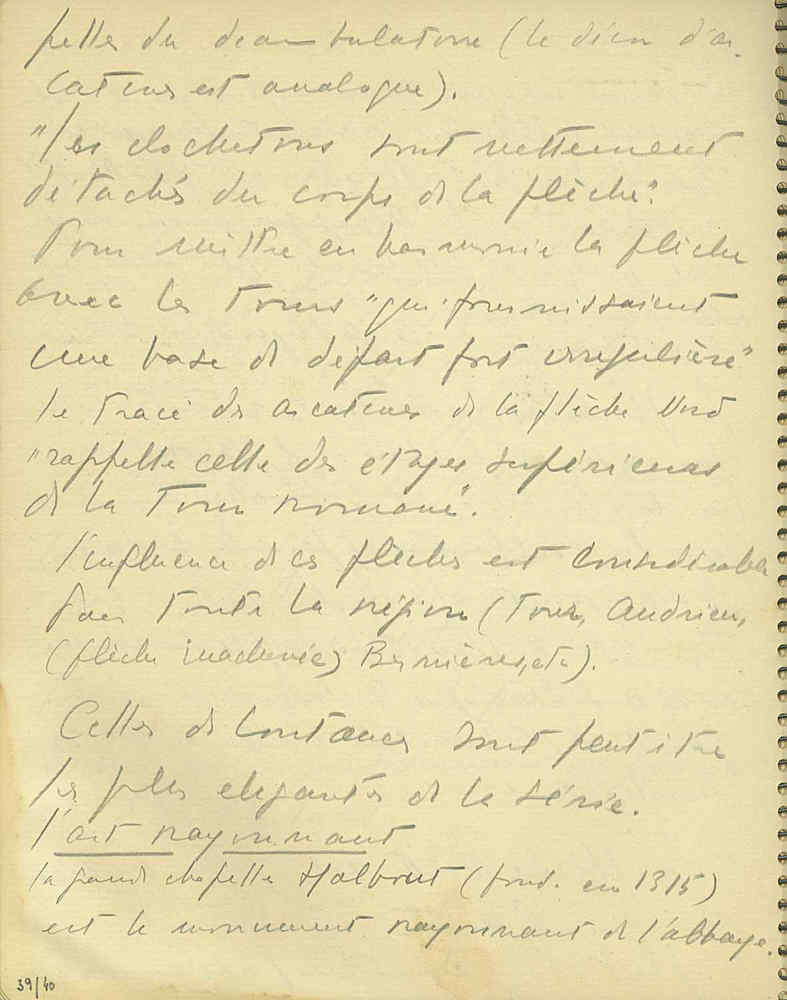 pelles du deambulatoire (le dessin d'ar-
catures est analogue).
"les clochetons sont nettement
détachés du corps de la flèche".
Pour mettre en harmonie la flèche
avec les tours "qui fournissaient
une base de départ fort irrégulière"
le tracé des arcatures de la flèche Nord
"rappelle celle des étages supérieurs
de la Tour romane".
l'influence de ces flèches est considérable
dans toute la région (Tour, Audrieu,
(flèche inachevée) Bernières, etc).
Celles de Coutances sont peut être
les plus elegantes de la série.
l'art rayonnant
la grande chapelle Halbout (fond. en 1315)
est le monument rayonnant de l'abbaye.
39/40